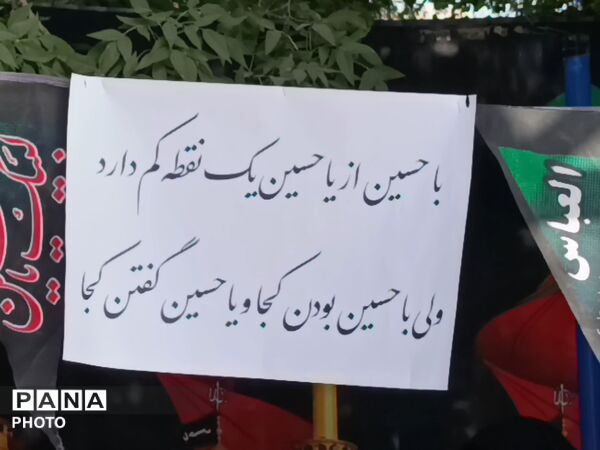 با حسین از یا حسین یک نقطه کم دارد
ولی با حسین بودن کجا و یا حسین گفتن کجا
العباس
PANA
PHOTO